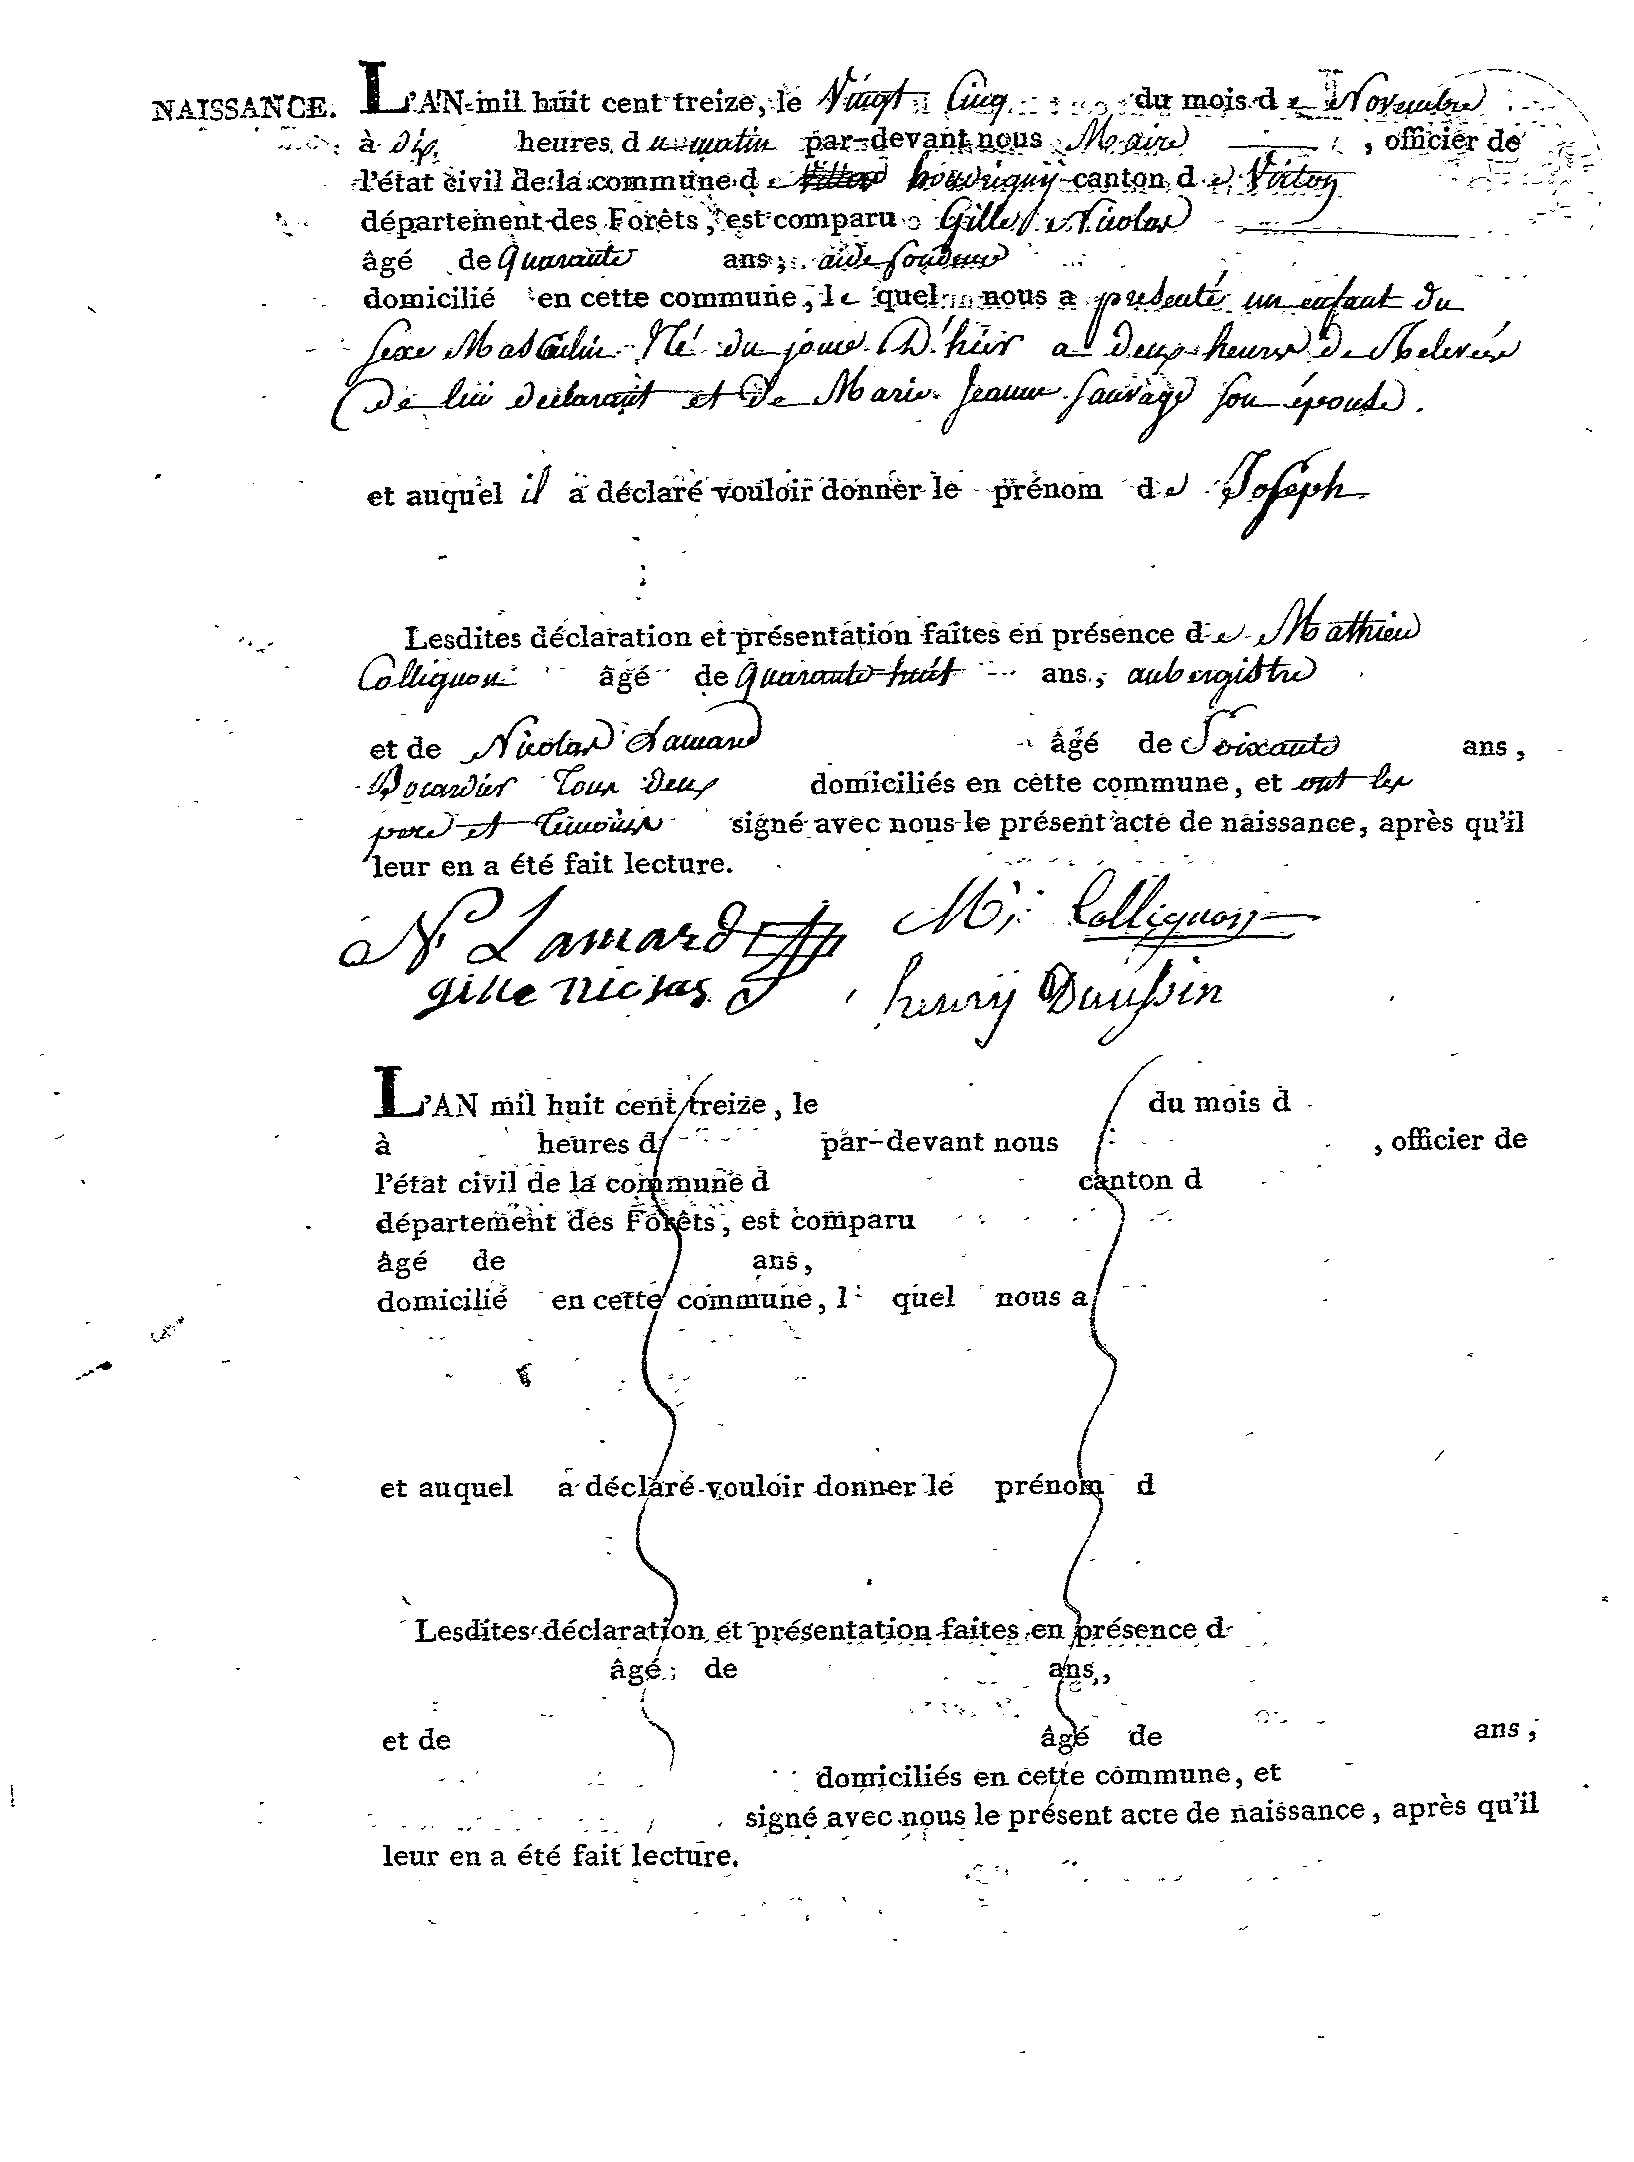 NAISSANCE. L'AN mil huit cent treize, le Vingt Cinq du mois de Novembre
à dix heures du matin par-devant nous Maire , officier de
l'état civil de la commune de houdrigny canton de Virton
département des Forêts, est comparu Gille Nicolas
âgé de Quarante ans, aide fondeur
domicilié en cette commune, lequel nous a présenté un enfant du
sexe Masculin Né du jour D'hier a deux heures de Relevée
De lui declarant et De Marie Jeanne Sauvage son épouse.
et auquel il a déclaré vouloir donner le prénom de Joseph
Lesdites déclaration et présentation faites en présence de Mathieu
Collignon âgé de Quarante huit ans, aubergiste
et de Nicolas Lamard âgé de Soixante ans,
Bocardier Tous Deux domiciliés en cette commune, et ont les
pere et temoins signé avec nous le présent acte de naissance, après qu'il
leur en a été fait lecture.
N Lamard M. Collignon
gille nicolas henry Daussin
L'AN mil huit cent treize, le du mois d
à heures d par-devant nous , officier de
l'état civil de la commune d canton d
département des Forêts, est comparu
âgé de ans,
domicilié en cette commune, l quel nous a
et auquel a déclaré vouloir donner le prénom d
Lesdites déclaration et présentation faites en présence d
âgé de ans,
et de âgé de ans,
domiciliés en cette commune, et
signé avec nous le présent acte de naissance, après qu'il
leur en a été fait lecture.